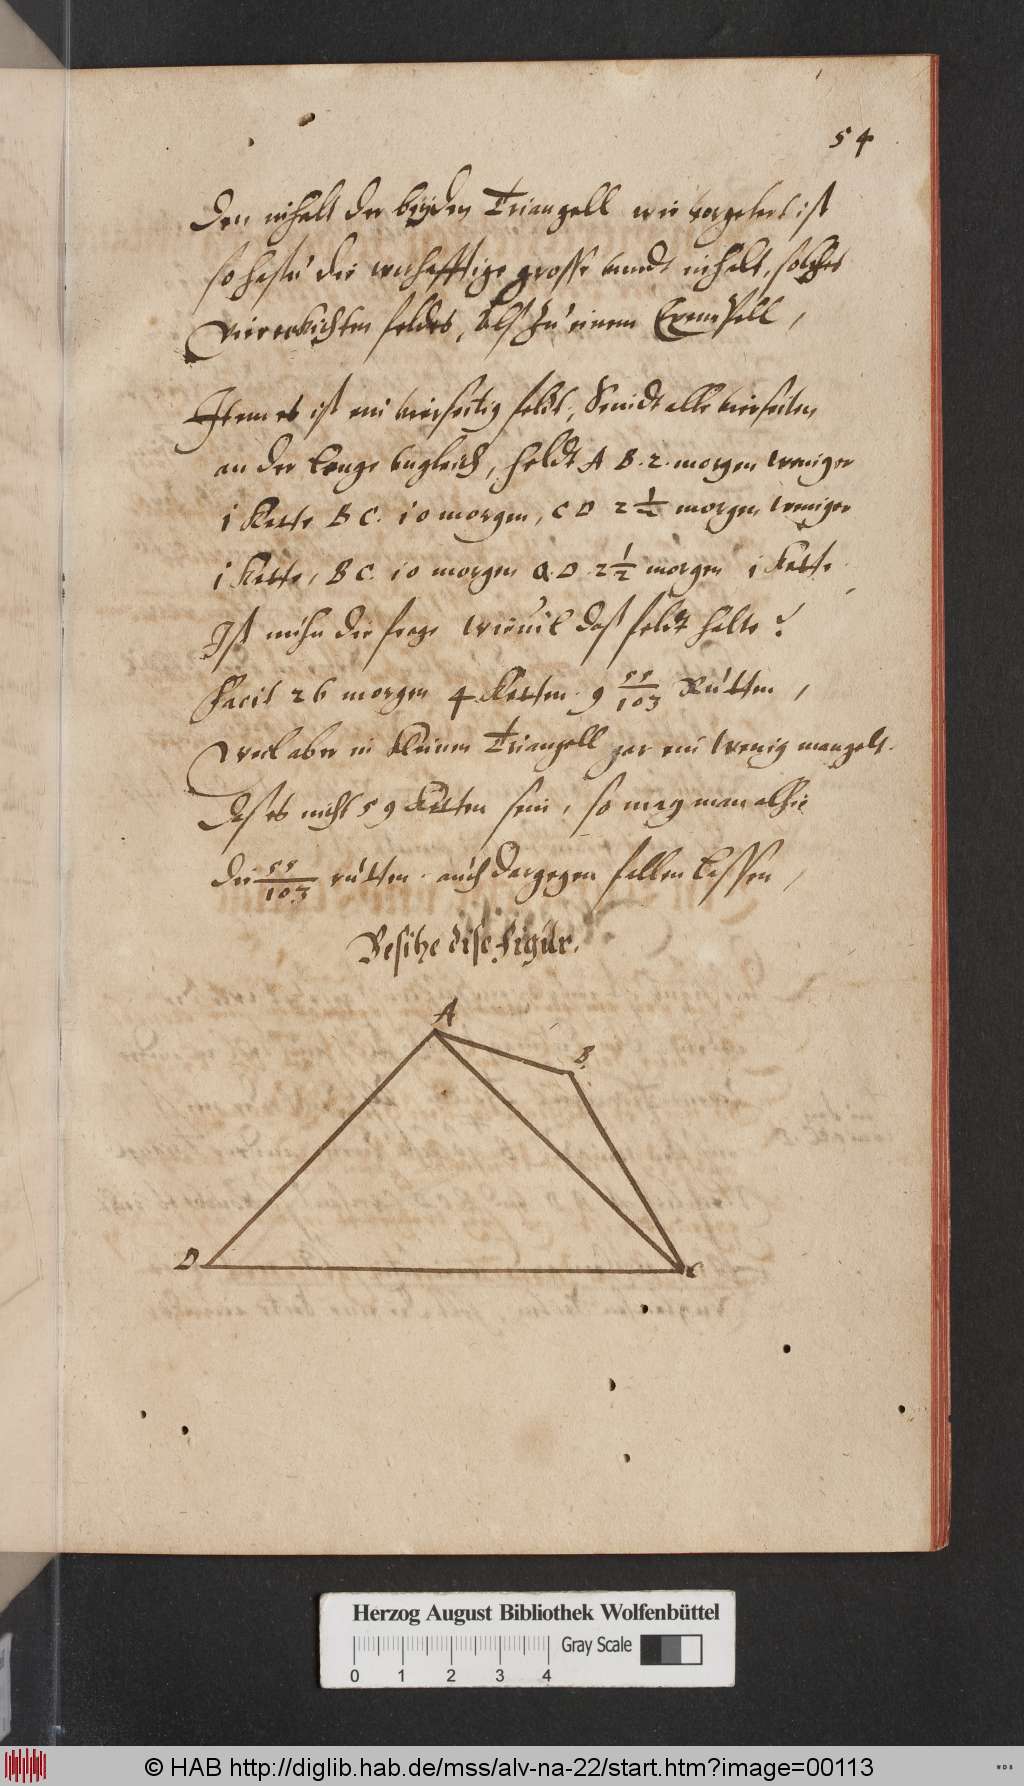 54
den inhalt der beyden Triangell wie vorgelert ist
so hastu die warhafftige grosse unndt inhalt, solches
viereckichten feldes, Alß zu einem Exempell,
Item es ist ein vierseitig feldt, Seindt alle vierseiten
an der lenge ungleich, heldt A B. 2. morgen weniger
i Kette B C. i0 morgen, C D 2 1/2 morgen weniger
i Kette, B C. i0 morgen A. D. 2 1/2 morgen i Kette
Ist nuhn die frage wieviel daß feldt halte?
Facit 26 morgen 4 Ketten. 9 55/103 Rutten,
weil aber in kleinen Triangell gar ein wenig mangelt.
daß es nicht 59 Ketten sein, so mag man alhie
die 55/103 rutten. auch dargegen fallen lassen,
Besihe dise figur.
A
B.
D
C
Herzog August Bibliothek Wolfenbüttel
Gray Scale
0 1 2 3 4
© HAB http://diglib.hab.de/mss/alv-na-22/start.htm?image=00113